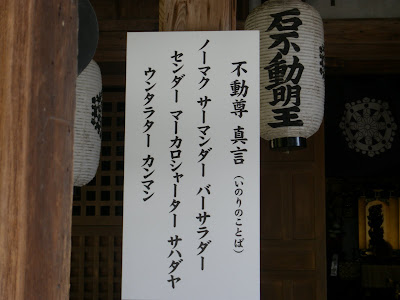 石不動明王
不動尊 真言(いのりのことば)
ノーマク サーマンダー バーサラダー
センダー マーカロシャーター サハダヤ
ウンタラター カンマン